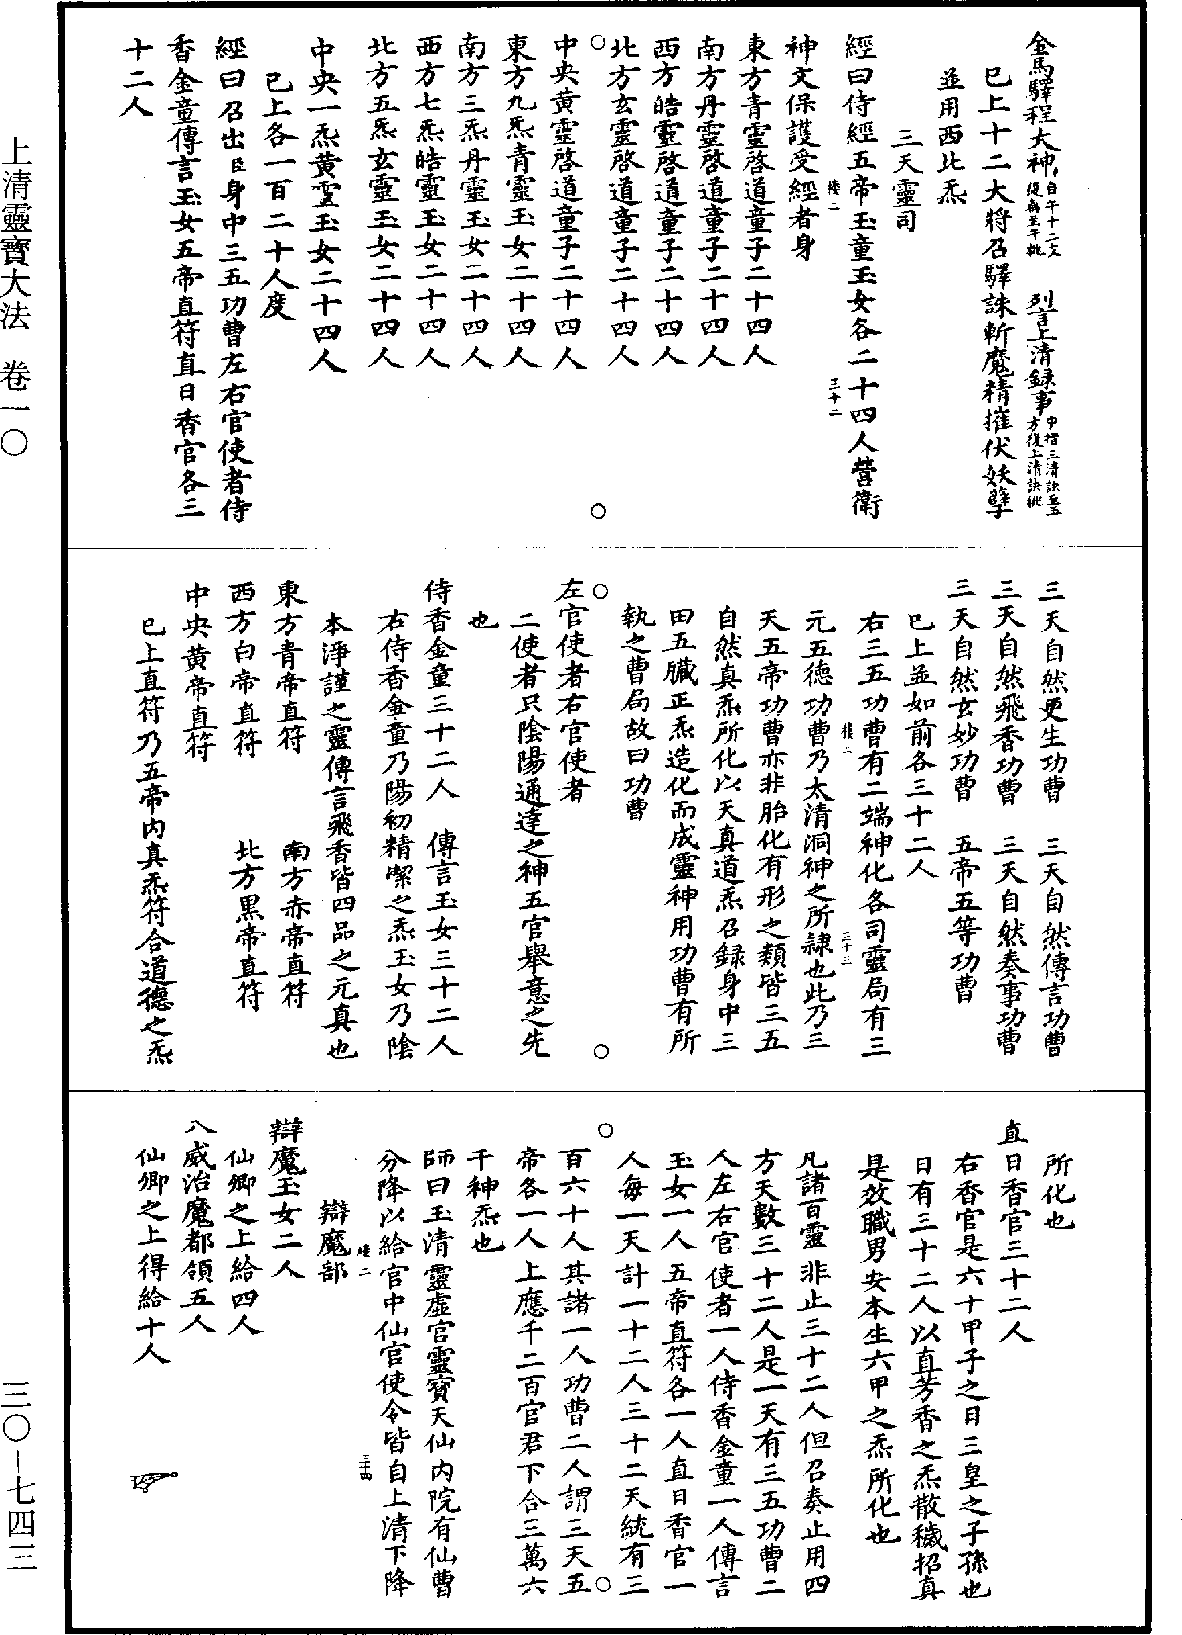 金馬驛程大神自午十二文從病至午批　烈言上清録事中指三清訣至五方復上清訣批
已上十二大將召驛誅斬魔精摧伏妖孽
並用西北炁
三天靈司
經曰侍經五帝玉童玉女各二十四人營衛
陵二　三十二
神文保護受經者身
東方青靈啓道童子二十四人
南方丹靈啓道童子二十四人
西方皓靈啓道童子二十四人
北方玄靈啓道童子二十四人
中央黄靈啓道童子二十四人
東方九炁青靈玉女二十四人
南方三炁丹靈玉女二十四人
西方七炁皓靈玉女二十四人
北方五炁玄靈玉女二十四人
中央一炁黄靈玉女二十四人
已上各一百二十人度
經曰召出臣身中三五功曹左右官使者侍
香金童傳言玉女五帝直符直日香官各三
十二人
三天自然更生功曹　三天自然傳言功曹
三天自然飛香功曹　三天自然奏事功曹
三天自然玄妙功曹　五帝五等功曹
已上並如前各三十二人
右三五功曹有二端神化各司靈局有三
三十三
元五德功曹乃太清洞神之所隷也此乃三
天五帝功曹亦非胎化有形之類皆三五
自然真炁所化以天真道炁召録身中三
田五臟正炁造化而成靈神用功曹有所
執之曹局故曰功曹
左官使者右官使者
二使者只陰陽通達之神五官舉意之先
也
侍香金童三十二人　傳言玉女三十二人
右侍香金童乃陽初精潔之炁玉女乃陰
本淨謹之靈傳言飛香皆四品之元真也
東方青帝直符　南方赤帝直符
西方白帝直符　北方黒帝直符
中央黄帝直符
已上直符乃五帝内真炁符合道德之炁
所化也
直日香官三十二人
右香官是六十甲子之日三皇之子孫也
日有三十二人以直芳香之炁散穢招真
是效職男安本生六甲之炁所化也
凡諸百靈非止三十二人但召奏止用四
方天數三十二人是一天有三五功曹二
人左右官使者一人侍香金童一人傳言
玉女一人五帝直符各一人直日香官一
人每一天計一十二人三十二天統有三
百六十人其諸一人功曹二人謂三天五
帝各一人上應千二百官君下合三萬六
千神炁也
師曰玉清靈虛官靈寶天仙内院有仙曹
分降以給官中仙官使令皆自上清下降
陵二　三十四
辯魔部
辯魔玉女二人
仙卿之上給四人
八威治魔都領五人
仙卿之上得給十人
上清靈寶大法　卷一〇
三〇－七四三